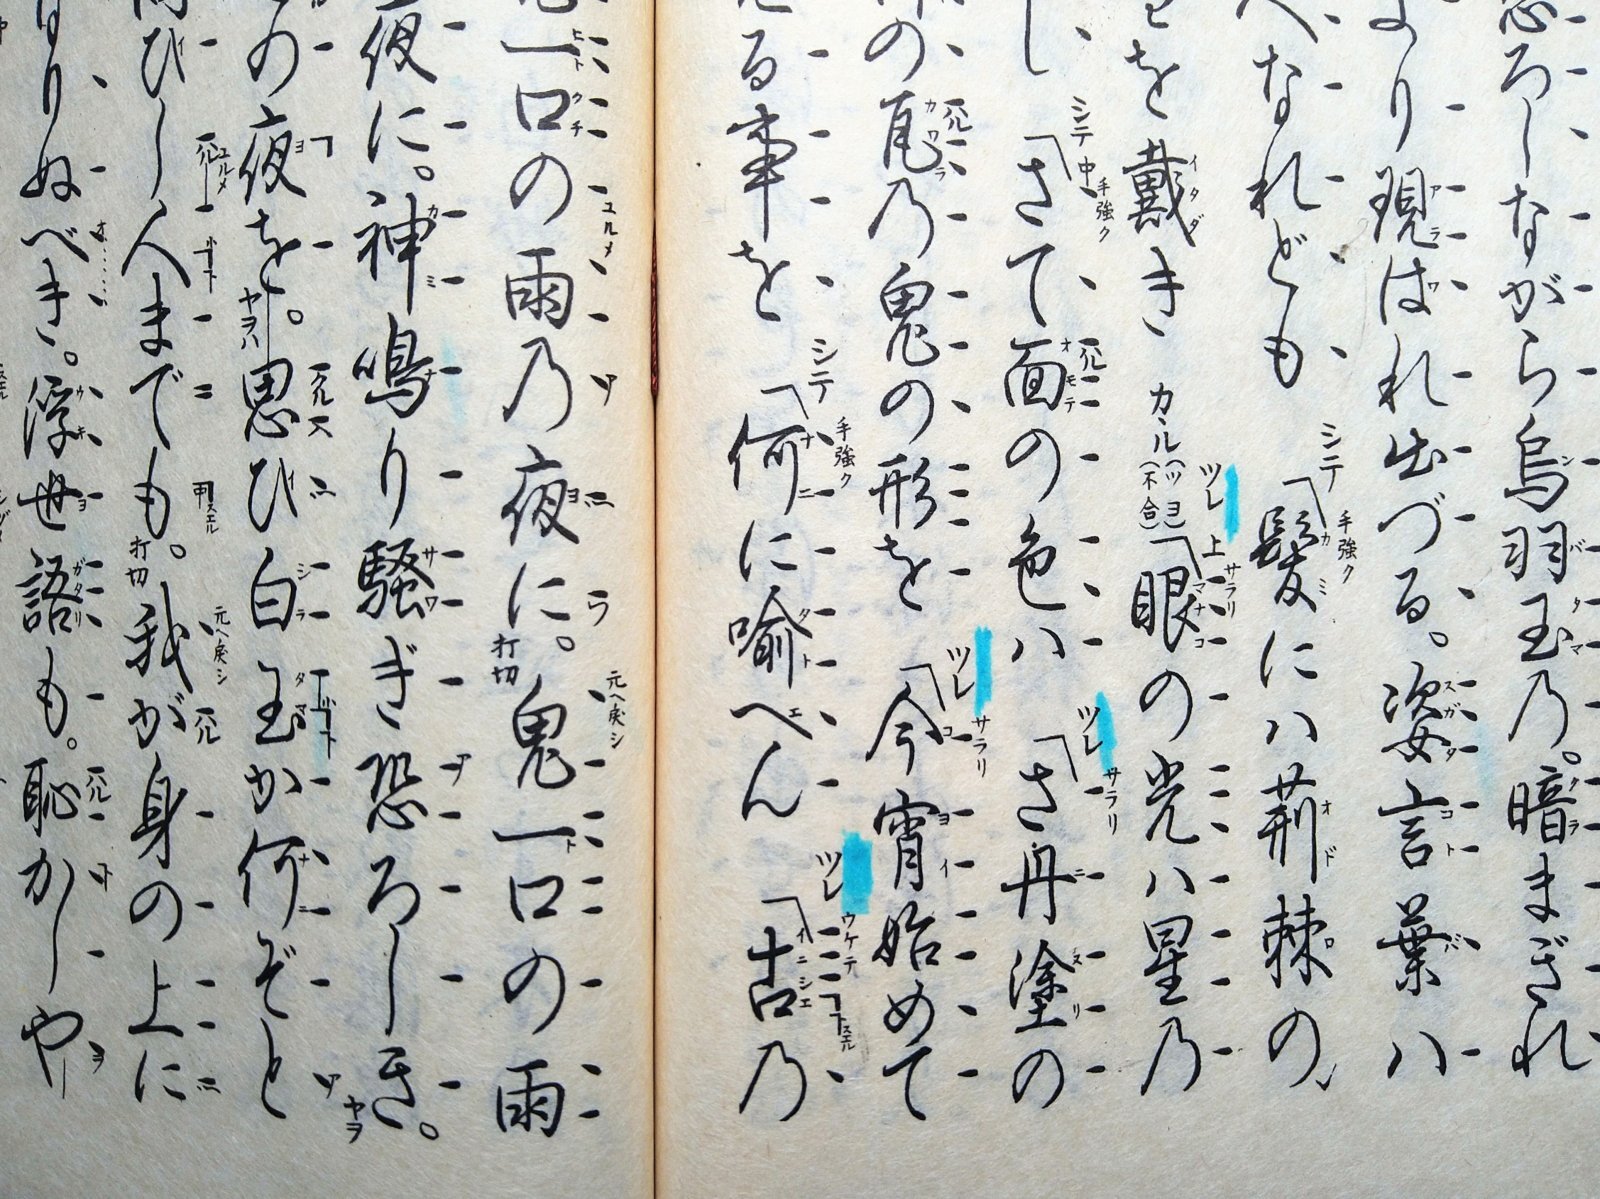 恐ろしながら烏羽玉乃。暗まぎれ
より現はれ出づる。姿言葉ハ
人なれども シテ 手強ク「髪にハ荊棘の
を戴き カヽル(ツヨ)(不合) ツレ 上 サラリ「眼の光ハ星乃
し シテ 中 手強ク「さて面の色ハ ツレ サラリ「さ丹塗の
の瓦乃鬼の形を ツレ サラリ「今宵始めて
見る事を シテ 手強ク「何に喩へん ツレ ウケテ「古乃
鬼一口の雨乃夜に。打切 元ヘ戻シ 鬼一口の雨
夜に。神鳴り騒ぎ恐ろしき。
その夜を。ヤヲハ 思ひ白玉か何ぞと
問ひし人までも。打切 元ヘ戻シ 我が身の上に
なりぬべき。浮世語も。恥かしや